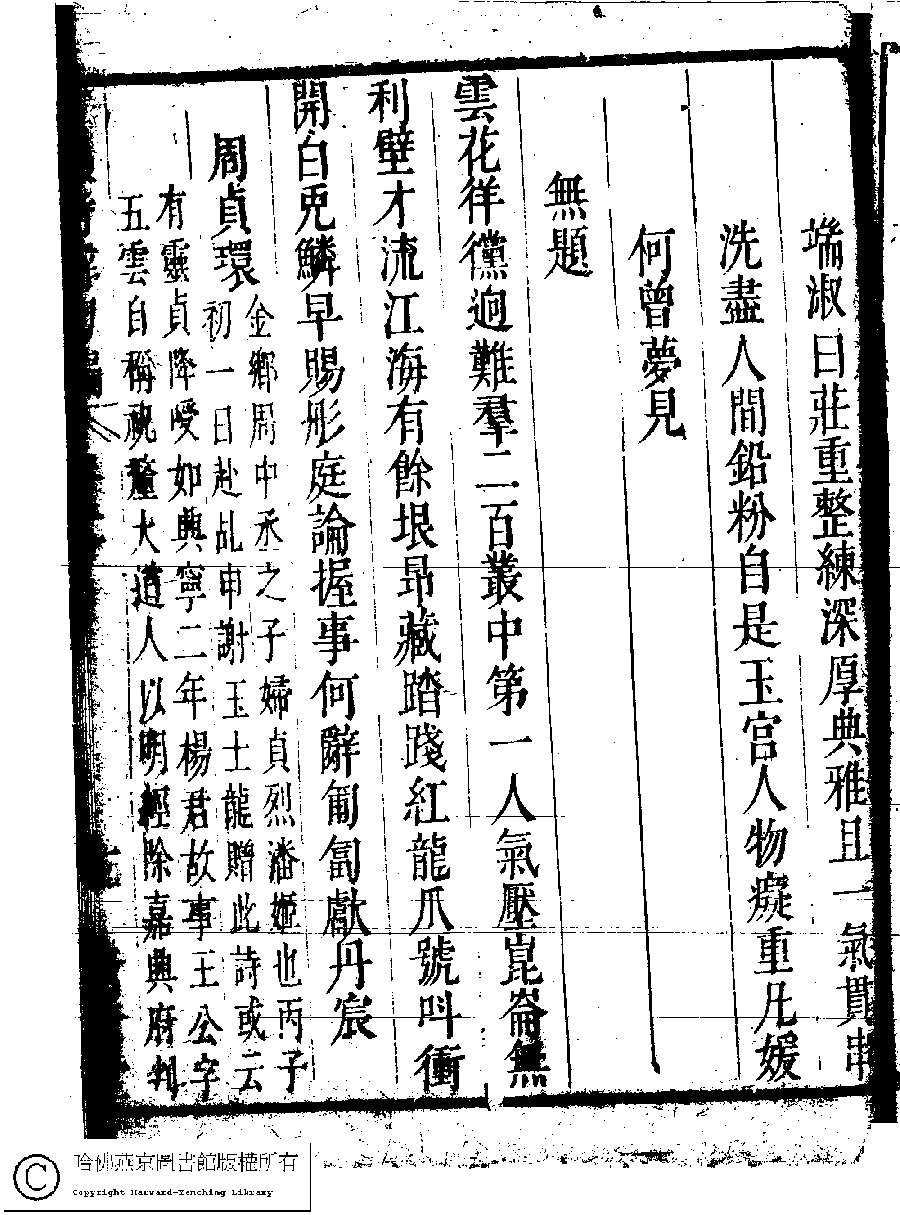 端淑曰莊重整練深厚典雅且一氣貫串
洗盡人間鉛粉自是玉宮人物癡重凡媛
何曾夢見
無題
雲花徉黨逈難羣二百叢中第一人氣壓崑崙無
利壁才流江海有餘垠昂藏踏踐紅龍爪號呌衝
開白兎鱗早賜彤庭論握事何辭匍匐獻丹宸
周貞環
金鄉周中丞之子婦貞烈潘姬也丙子
初一日赴乩申謝玉士龍贈此詩或云
有靈貞降嘜如興寧二年楊君故事王公字
五雲自稱祝釐大道人以明經除嘉興府判
哈佛燕京圖書館版權所有
Copyright Harvard-Yenching Library